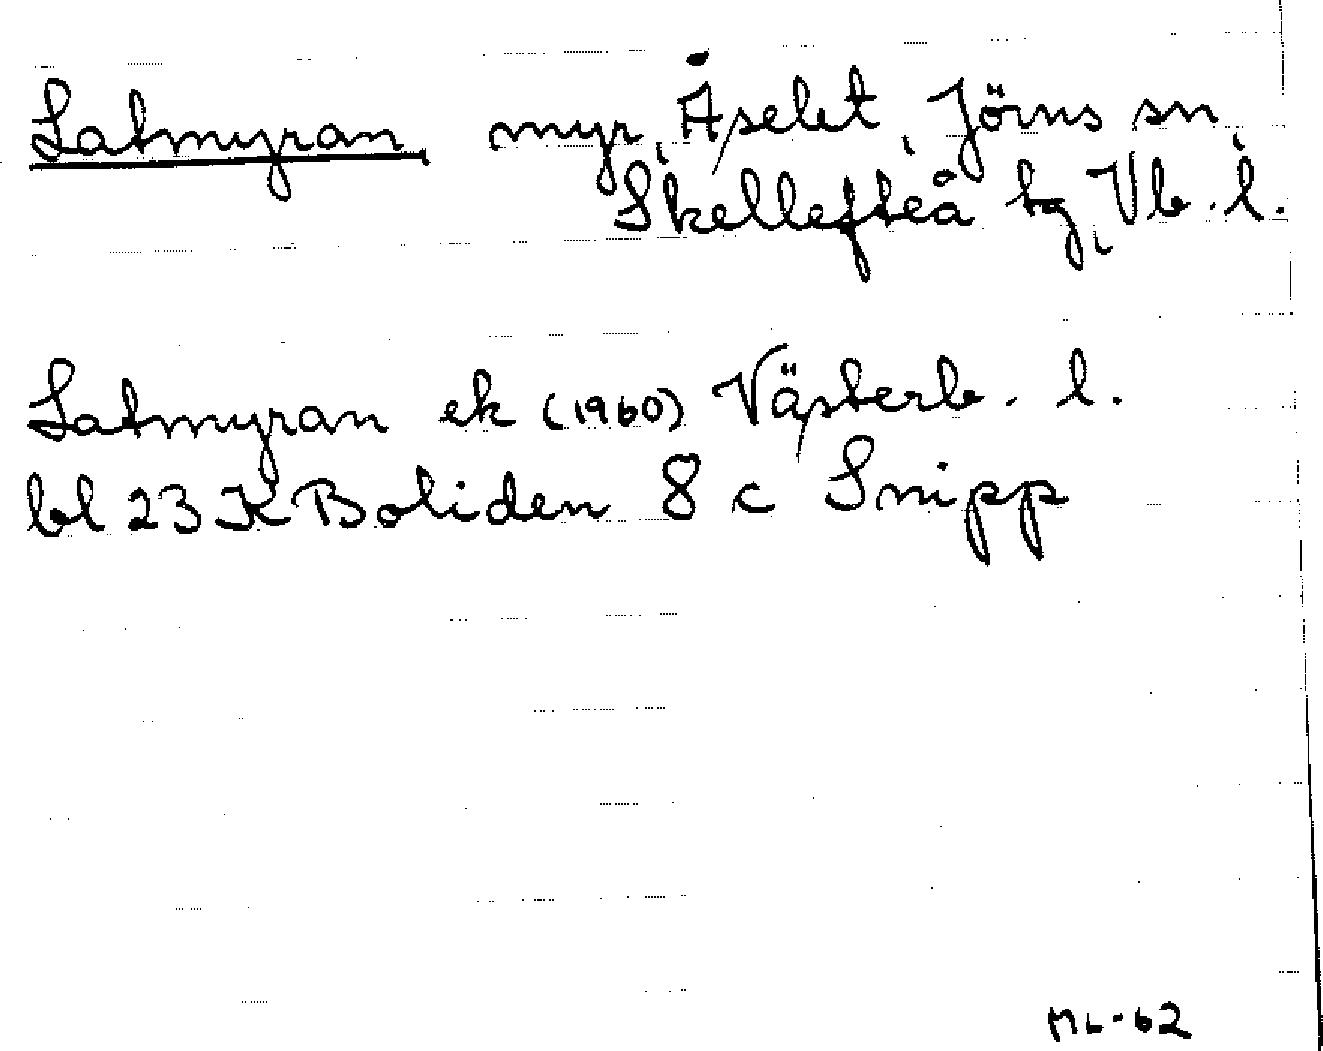 Satmyran myr, Åselet, Jörns sn,
Skellefteå tg, Vb. l.
Satmyran ek (1960) Västerb. l.
bl 23 K Boliden 8 c Snipp
ML-62